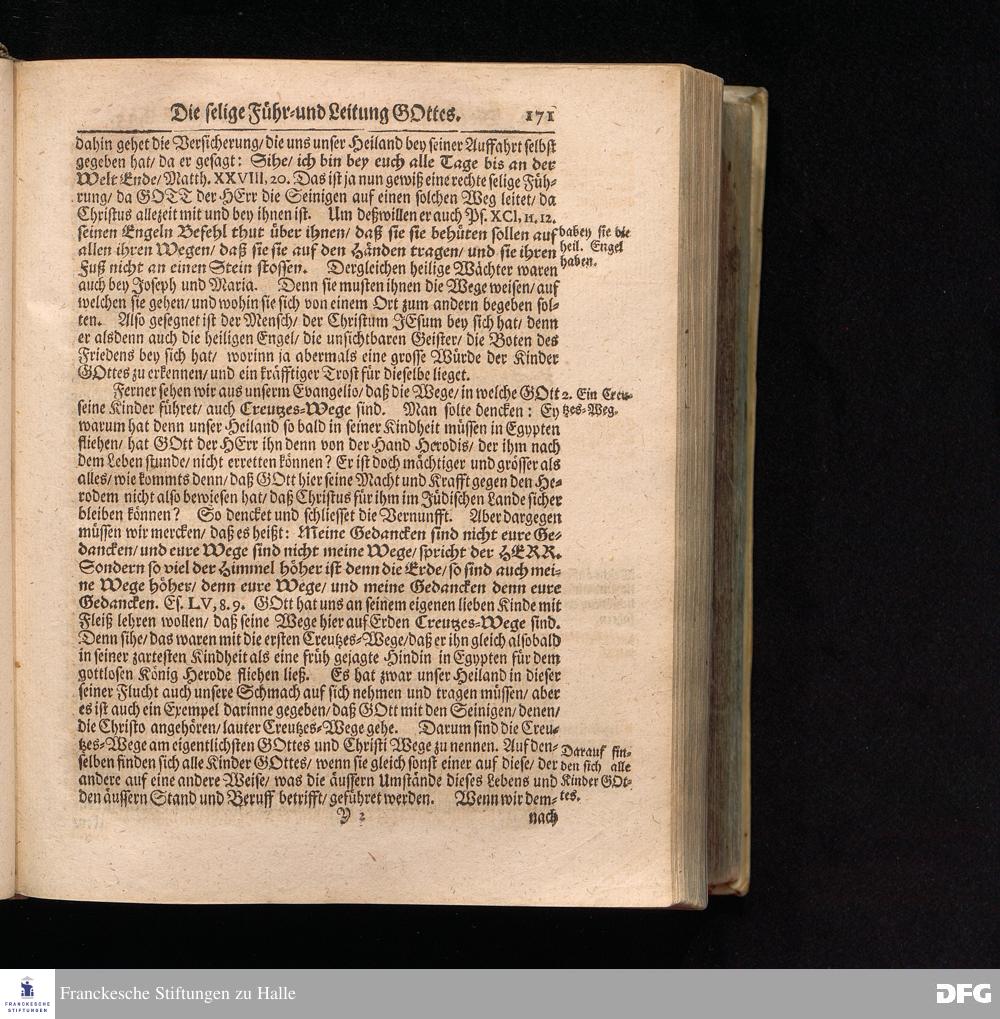 Die selige Führ-und Leitung GOttes. 171
dahin gehet die Versicherung/ die uns unser Heiland bey seiner Auffahrt selbst
gegeben hat/ da er gesagt: Sihe/ ich bin bey euch alle Tage bis an der
Welt Ende/ Matth. XXVIII, 20. Das ist ja nun gewiß eine rechte selige Füh-
rung/ da GOTT der HErr die Seinigen auf einen solchen Weg leitet/ da
Christus allezeit mit und bey ihnen ist. Um deßwillen er auch Ps. XCI, 11. 12.
seinen Engeln Befehl thut über ihnen/ daß sie sie behüten sollen auf
allen ihren Wegen/ daß sie sie auf den Händen tragen/ und sie ihren
Fuß nicht an einen Stein stossen. Dergleichen heilige Wächter waren
auch bey Joseph und Maria. Denn sie musten ihnen die Wege weisen/ auf
welchen sie gehen/ und wohin sie sich von einem Ort zum andern begeben sol-
ten. Also gesegnet ist der Mensch/ der Christum JEsum bey sich hat/ denn
er alsdenn auch die heiligen Engel/ die unsichtbaren Geister/ die Boten des
Friedens bey sich hat/ worinn ja abermals eine grosse Würde der Kinder
GOttes zu erkennen/ und ein kräfftiger Trost für dieselbe lieget.
dabey sie die
heil. Engel
haben.
Ferner sehen wir aus unserm Evangelio/ daß die Wege/ in welche GOtt
seine Kinder führet/ auch Creutzes-Wege sind. Man solte dencken: Ey
warum hat denn unser Heiland so bald in seiner Kindheit müssen in Egypten
fliehen/ hat GOtt der HErr ihn denn von der Hand Herodis/ der ihm nach
dem Leben stunde/ nicht erretten können? Er ist doch mächtiger und grösser als
alles/ wie kommts denn/ daß GOtt hier seine Macht und Krafft gegen den He-
rodem nicht also bewiesen hat/ daß Christus für ihm im Jüdischen Lande sicher
bleiben können? So dencket und schliesset die Vernunfft. Aber dargegen
müssen wir mercken/ daß es heißt: Meine Gedancken sind nicht eure Ge-
dancken/ und eure Wege sind nicht meine Wege/ spricht der HERR.
Sondern so viel der Himmel höher ist denn die Erde/ so sind auch mei-
ne Wege höher/ denn eure Wege/ und meine Gedancken denn eure
Gedancken. Es. LV, 8. 9. GOtt hat uns an seinem eigenen lieben Kinde mit
Fleiß lehren wollen/ daß seine Wege hier auf Erden Creutzes-Wege sind.
Denn sihe/ das waren mit die ersten Creutzes-Wege/ daß er ihn gleich alsobald
in seiner zartesten Kindheit als eine früh gejagte Hindin in Egypten für dem
gottlosen König Herode fliehen ließ. Es hat zwar unser Heiland in dieser
seiner Flucht auch unsere Schmach auf sich nehmen und tragen müssen/ aber
es ist auch ein Exempel darinne gegeben/ daß GOtt mit den Seinigen/ denen/
die Christo angehören/ lauter Creutzes-Wege gehe. Darum sind die Creu-
tzes-Wege am eigentlichsten GOttes und Christi Wege zu nennen. Auf den-
selben finden sich alle Kinder GOttes/ wenn sie gleich sonst einer auf diese/ der
andere auf eine andere Weise/ was die äussern Umstände dieses Lebens und
den äussern Stand und Beruff betrifft/ geführet werden. Wenn wir dem-
2. Ein Creu-
tzes-Weg.
Darauf fin-
den sich alle
Kinder GOt-
tes.
Y 2
nach
FRANCKESCHE
STIFTUNGEN
Franckesche Stiftungen zu Halle
DFG